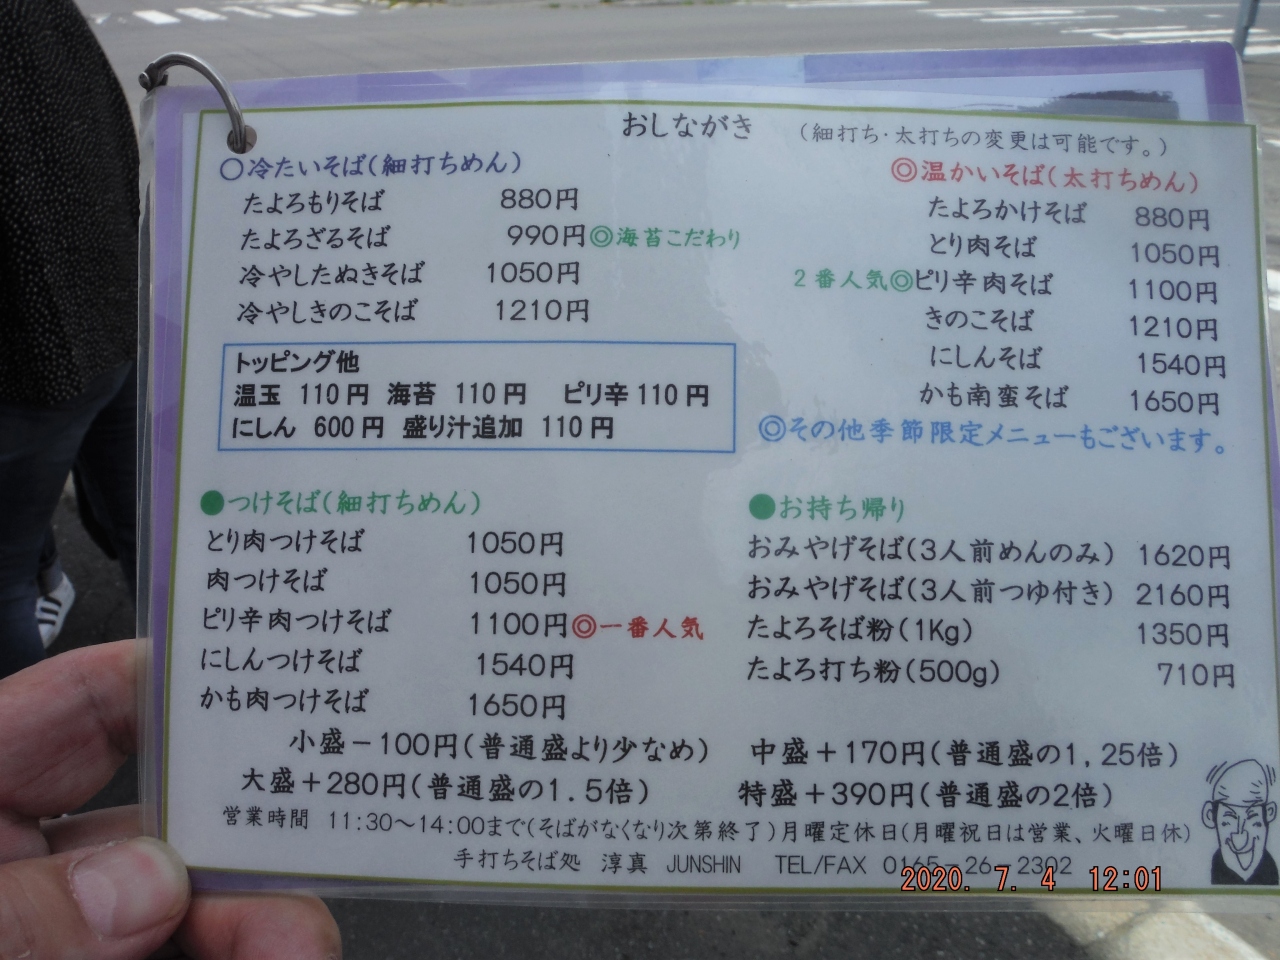 おしながき （細打ち・太打ちの変更は可能です。）
○冷たいそば（細打ちめん）
たよろもりそば 880円
たよろざるそば 990円◎海苔こだわり
冷やしたぬきそば 1050円
冷やしきのこそば 1210円
トッピング他
温玉 110円 海苔 110円 ピリ辛110円
にしん 600円 盛り汁追加 110円
◎温かいそば（太打ちめん）
たよろかけそば 880円
とり肉そば 1050円
2番人気◎ピリ辛肉そば 1100円
きのこそば 1210円
にしんそば 1540円
かも南蛮そば 1650円
◎その他季節限定メニューもございます。
●つけそば（細打ちめん）
とり肉つけそば 1050円
肉つけそば 1050円
ピリ辛肉つけそば 1100円◎一番人気
にしんつけそば 1540円
かも肉つけそば 1650円
●お持ち帰り
おみやげそば（3人前めんのみ） 1620円
おみやげそば（3人前つゆ付き） 2160円
たよろそば粉（1Kg） 1350円
たよろ打ち粉（500g） 710円
小盛－100円（普通盛より少なめ） 中盛＋170円（普通盛の1,25倍）
大盛＋280円（普通盛の1.5倍） 特盛＋390円（普通盛の2倍）
営業時間 11:30～14:00まで（そばがなくなり次第終了）月曜定休日（月曜祝日は営業、火曜日休）
手打ちそば処 淳真 JUNSHIN TEL/FAX 0165－26－2302
2020. 7. 4 12:01